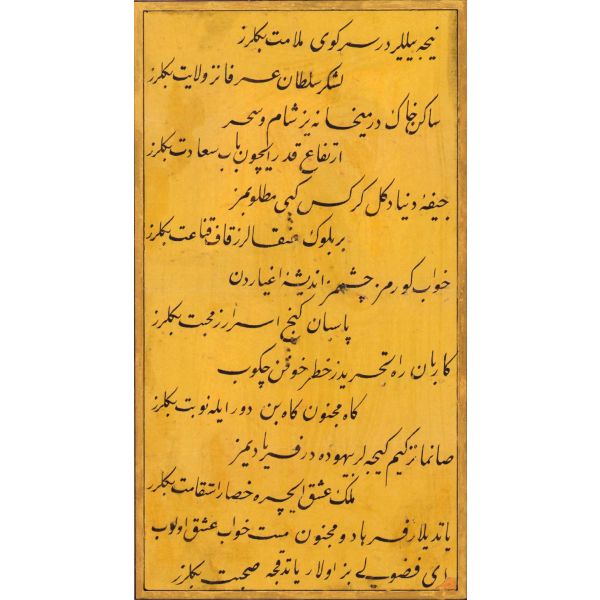 نیجه ییللردر سر کوی ملامت بکلرز
لشکر سلطان عرفانز ولایت بکلرز
ساکن خاک در میخانه یز شام و سحر
ارتفاع قدر ایچون باب سعادت بکلرز
جیفهٔ دنیا دکل کرکس کبی مطلوبمز
بر بلوک عنقالرز قاف قناعت بکلرز
خواب کورمز چشممز اندیشهٔ اغیاردن
پاسبان کنج اسرارز محبت بکلرز
کاربان راه تجریدز خطر خوفن چکوب
کاه مجنون کاه بن دور ایله نوبت بکلرز
صانماڭز کیم کیجه لر بیهوده در فریادیمز
ملک عشق ایچره حصار استقامت بکلرز
یاتدیلر فرهاد و مجنون مست خواب عشق اولوب
ای فضولی بز اولار یاتدقجه صحبت بکلرز